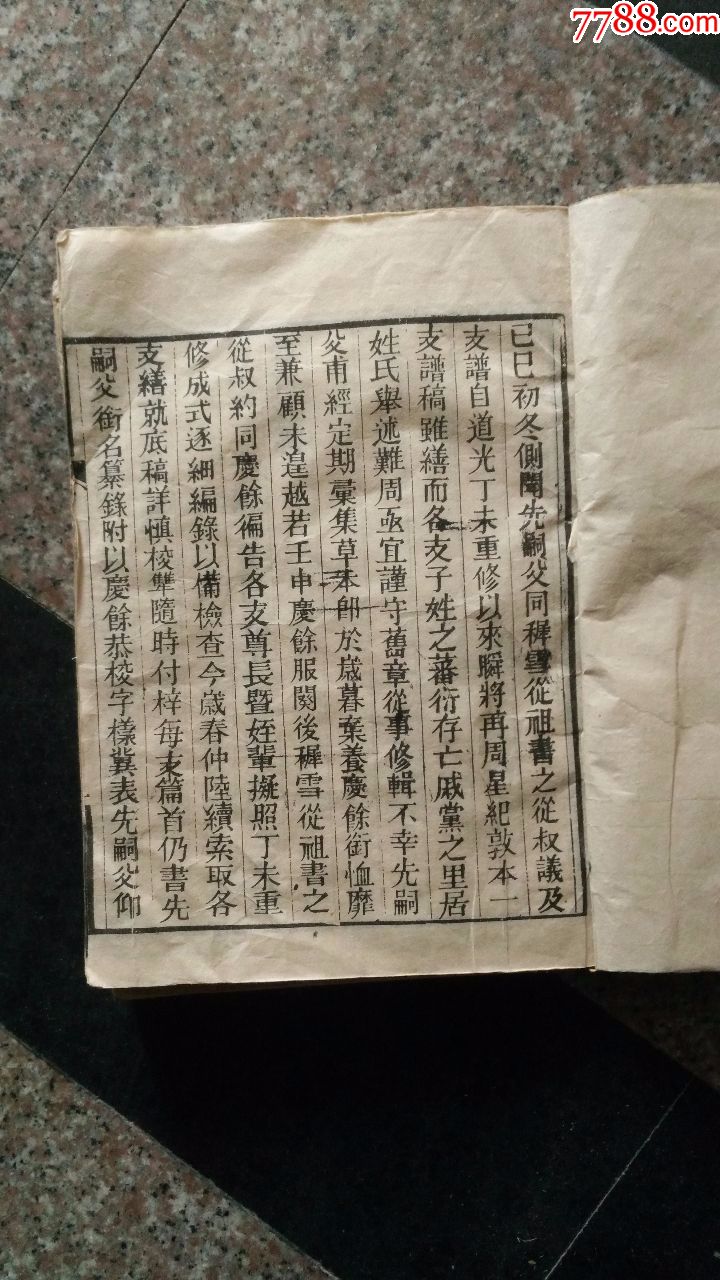 7788.com
己巳初冬側聞先嗣父同穉雪從祖書之從叔議及
支譜自道光丁未重修以來瞬將再周星紀敦本一
支譜稿雖繕而各支子姓之蕃衍存亡戚黨之里居
姓氏舉述難周亟宜謹守舊章從事修輯不幸先嗣
父甫經定期彙集草本卽於歲暮棄養慶餘銜恤靡
至兼顧未遑越若壬申慶餘服闋後穉雪從祖書之
從叔約同慶餘徧告各支尊長暨姪輩擬照丁未重
修成式逐細編錄以備檢查今歲春仲陸續索取各
支繕就底稿詳慎校讐隨時付梓每支篇首仍書先
嗣父銜名纂錄附以慶餘恭校字樣冀表先嗣父仰